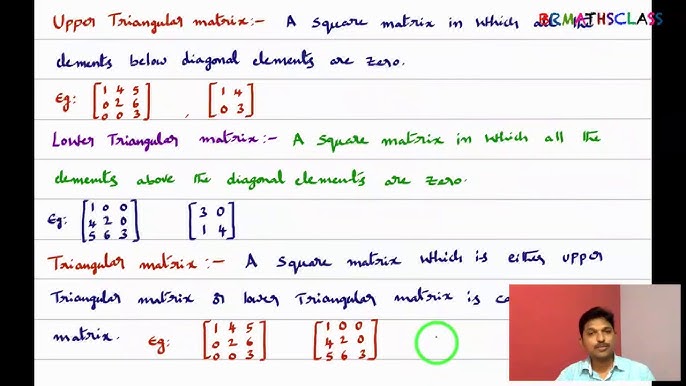 BRMATHSCLASS
Upper Triangular matrix:- A square matrix in which all the
elements below diagonal elements are zero.
Eg: [1 4 5 0 2 6 0 0 3] , [1 4 0 3]
Lower Triangular matrix:- A square matrix in which all the
elements above the diagonal elements are zero.
Eg: [1 0 0 4 2 0 5 6 3] [3 0 1 4]
Triangular matrix:- A square matrix which is either upper
Triangular matrix or lower Triangular matrix is
matrix. Eg: [1 4 5 0 2 6 0 0 3] [1 0 0 4 2 0 5 6 3]